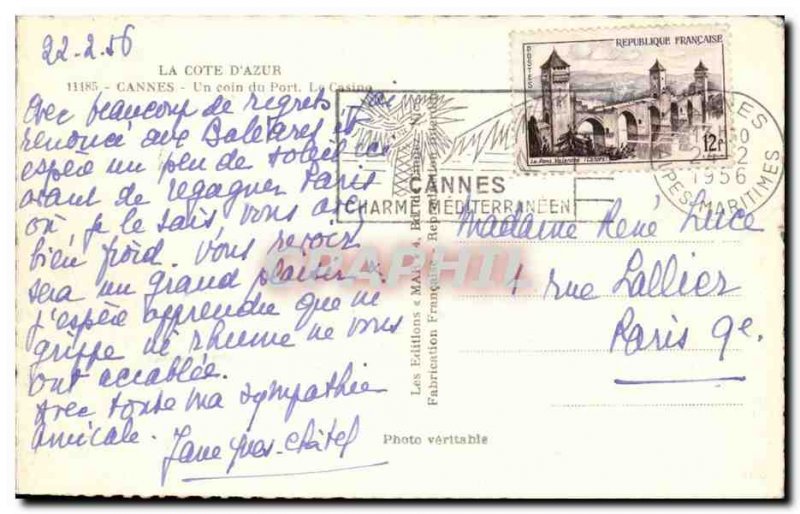 22.2.56
LA COTE D'AZUR
11485 - CANNES - Un coin du Port. Le Casino
Avec beaucoup de regrets j'ai
renoncé aux Baléares et
espère un peu de soleil ici
avant de regagner Paris
où je le sais vous avez
bien froid. Vous revoir
sera un grand plaisir &
j'espère apprendre que ni
grippe ni rhume ne vous
ont accablée.
Avec toute ma sympathie
amicale.
REPUBLIQUE FRANÇAISE
POSTES
12F
Le Pont Valentré (Cahors)
CANNES
CHARME MÉDITERRANÉEN
CANNES
1956
ALPES MARITIMES
Madame René Luce
1 rue Lallier
Paris 9e.
Les Editions « MAR »
Fabrication Française - Reproduction
Photo véritable
CRAPHIL